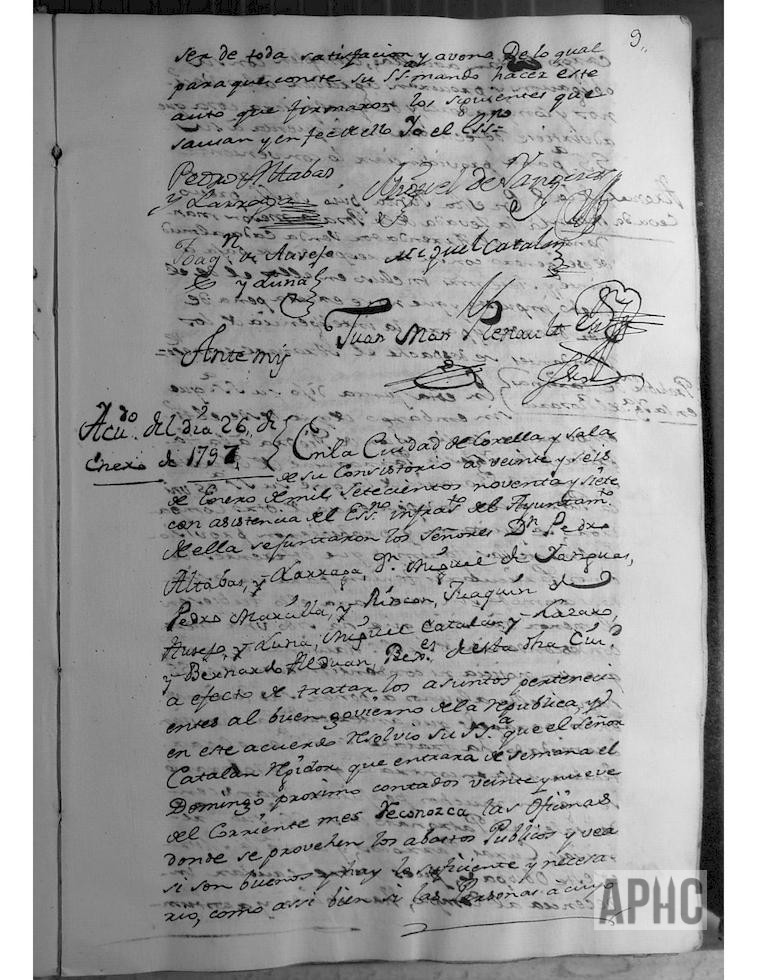 9
ser de toda satisfacion y avono De lo qual
para que conste su Ss.ª mandò hacer este
auto que firmaron los siguientes que
savian y en feè de ello Yo el Ess.no
Pedro Altabas
y Larraga
Miguel de Yanguas
Joaq.n de Ausejo
y Luna
Miguel Catalan
Juan Man.l Renault
Antemi
Acu.do del dia 26, de
Enero de 1797,
En la Ciudad de Corella y Sala
de su Consistorio a veinte y seis
de Enero de mil, setecientos noventa y siete
con asistencia del Ess.no infras.to del Ayuntam.to
de ella se juntaron los Señores D.n Pedro
Altabas, y Larraga, D.n Miguel de Yanguas,
Pedro Marzilla, y Rincon, Juaquin de
Ausejo, y Luna, Miguel Catalan y Nazaro,
y Bernardo Alduan, Rex.es de esta dha Ciu.d
a efecto de tratar los asuntos perteneci
entes al buen govierno de la Republica, y
en este acuerdo Resolvio su SS.ª que el Señor
Catalàn Rejidor que entrarà de semana el
Domingo proximo contados veinte y nueve
del Corriente mes reconozca las Oficinas
donde se provehen los abastos Publicos y vea
si son buenos y hay lo suficiente y necesa-
rio, como assi bien si las Personas a cuyo
APHC